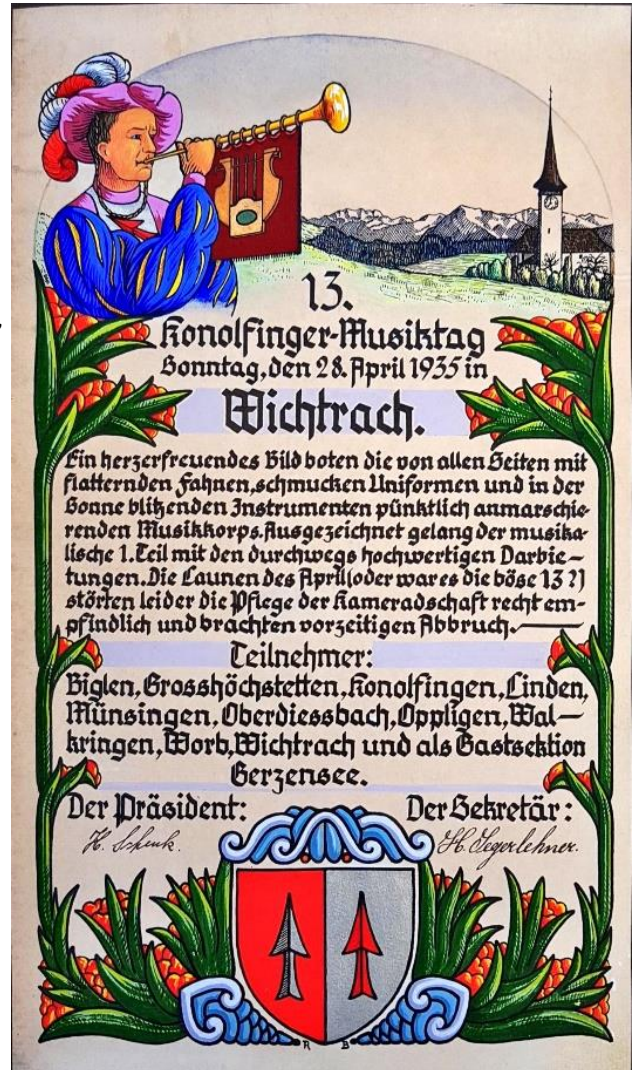 13.
Konolfinger-Musiktag
Sonntag, den 28. April 1935 in
Wichtrach.
Ein herzerfreuendes Bild boten die von allen Seiten mit
flatternden Fahnen, schmucken Uniformen und in der
Sonne blitzenden Instrumenten pünktlich anmarschie-
renden Musikkorps. Ausgezeichnet gelang der musika-
lische 1. Teil mit den durchwegs hochwertigen Darbie-
tungen. Die Launen des April (oder war es die böse 13?)
störten leider die Pflege der Kameradschaft recht em-
pfindlich und brachten vorzeitigen Abbruch.
Teilnehmer:
Biglen, Grosshöchstetten, Konolfingen, Linden,
Münsingen, Oberdiessbach, Oppligen, Wal-
kringen, Worb, Wichtrach und als Gastsektion
Gerzensee.
Der Präsident: Der Sekretär:
H. Schenk. H. Segerlehner.
R B